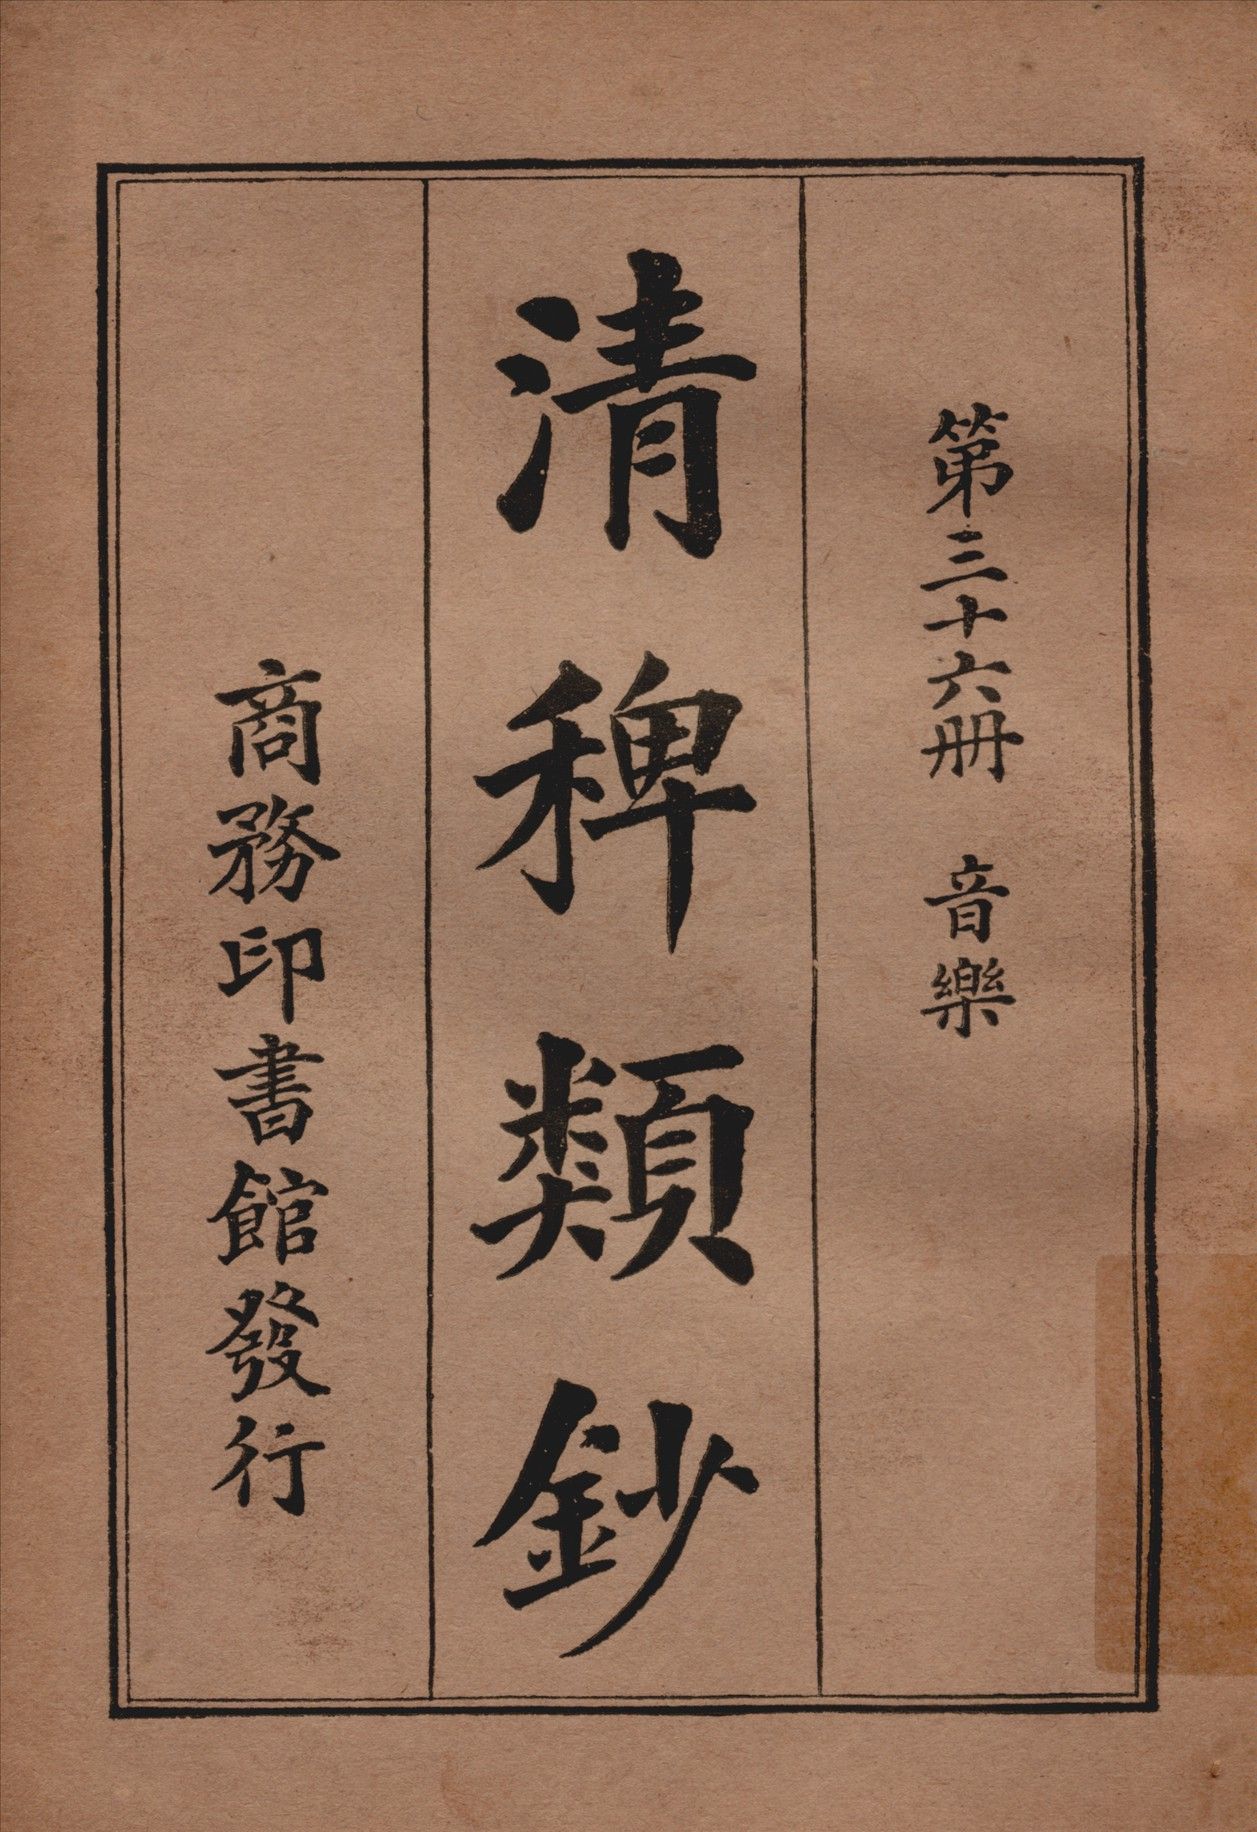 第三十六册 音樂
清稗類鈔
商務印書館發行